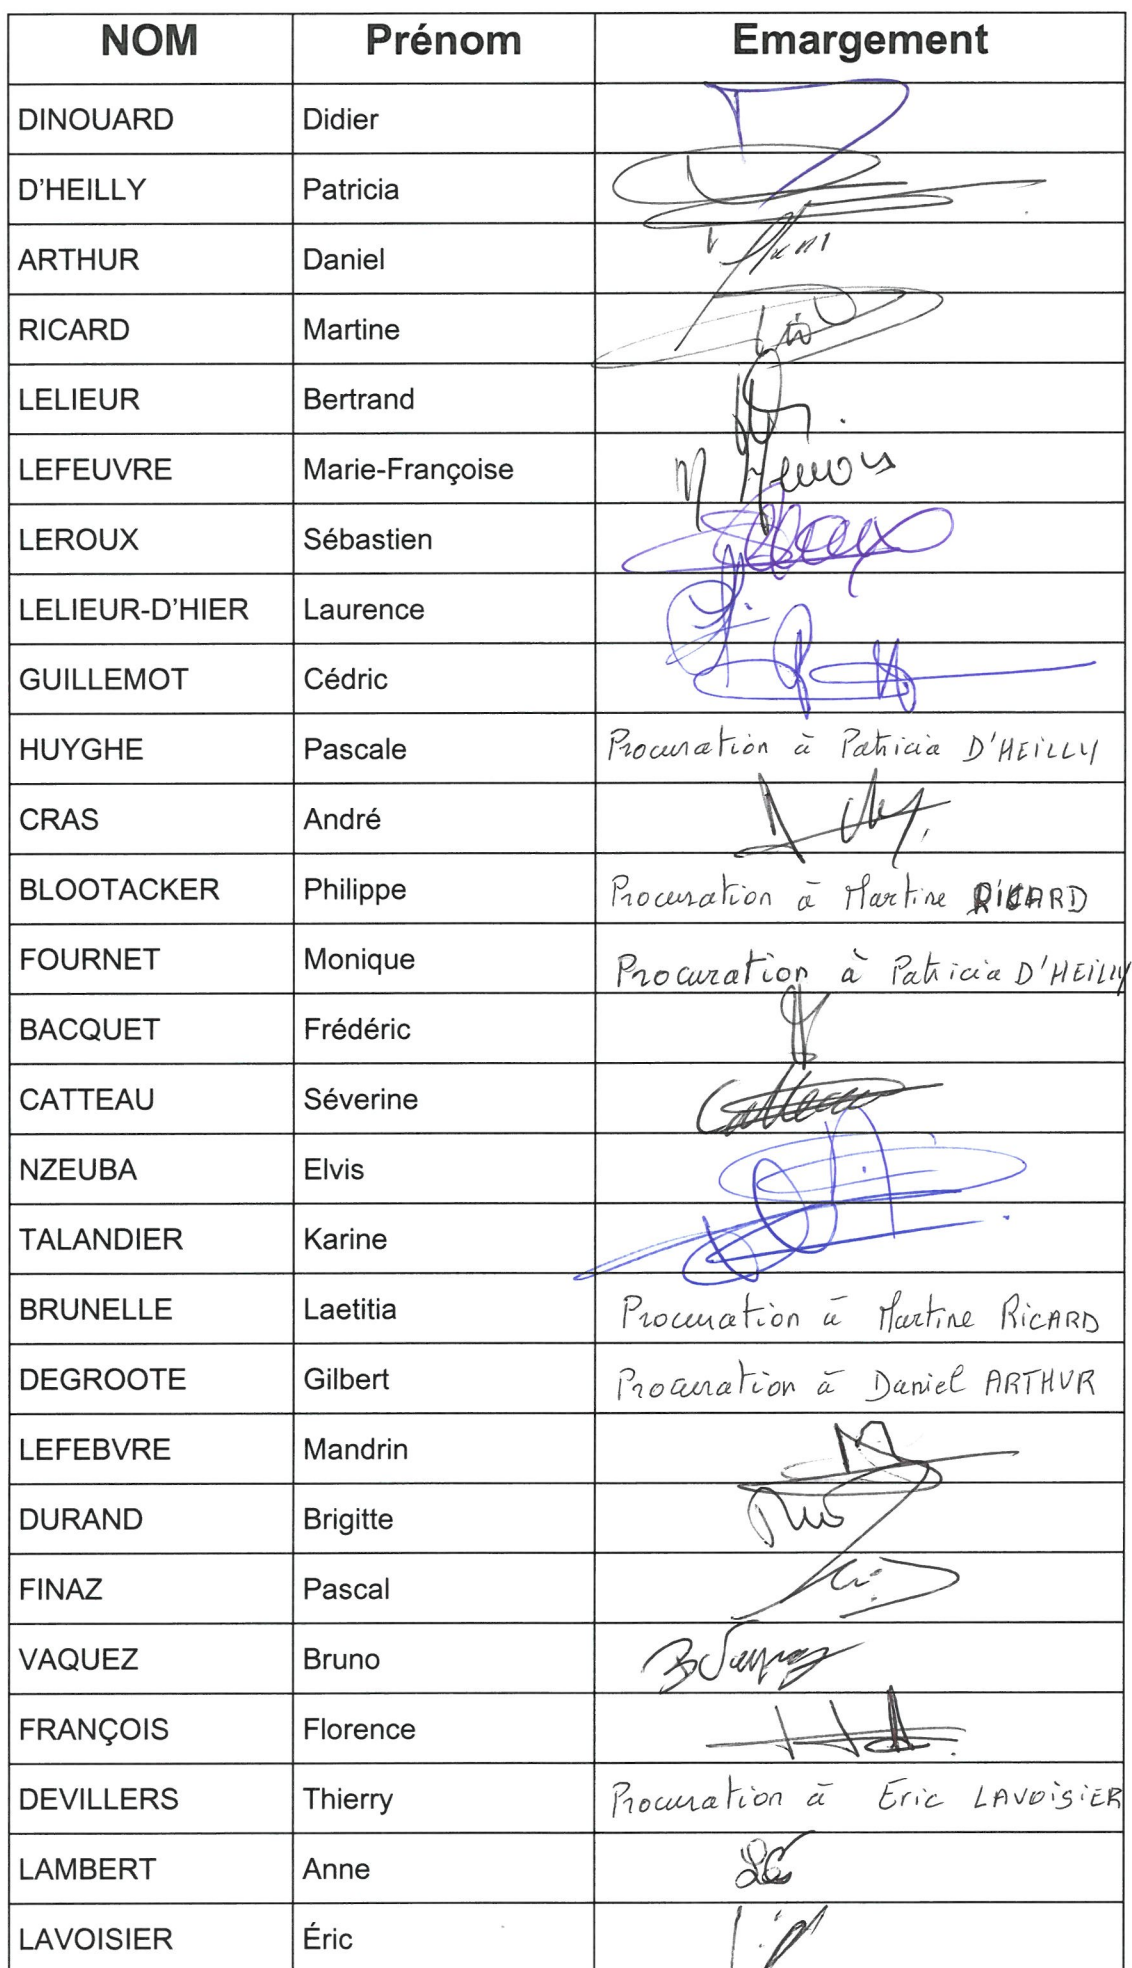 NOM Prénom Emargement
DINOUARD Didier
D'HEILLY Patricia
ARTHUR Daniel
RICARD Martine
LELIEUR Bertrand
LEFEUVRE Marie-Françoise
LEROUX Sébastien
LELIEUR-D'HIER Laurence
GUILLEMOT Cédric
HUYGHE Pascale Procuration à Patricia D'HEILLY
CRAS André
BLOOTACKER Philippe Procuration à Martine RICARD
FOURNET Monique Procuration à Patricia D'HEILLY
BACQUET Frédéric
CATTEAU Séverine
NZEUBA Elvis
TALANDIER Karine
BRUNELLE Laetitia Procuration à Martine RICARD
DEGROOTE Gilbert Procuration à Daniel ARTHUR
LEFEBVRE Mandrin
DURAND Brigitte
FINAZ Pascal
VAQUEZ Bruno
FRANÇOIS Florence
DEVILLERS Thierry Procuration à Eric LAVOISIER
LAMBERT Anne
LAVOISIER Éric